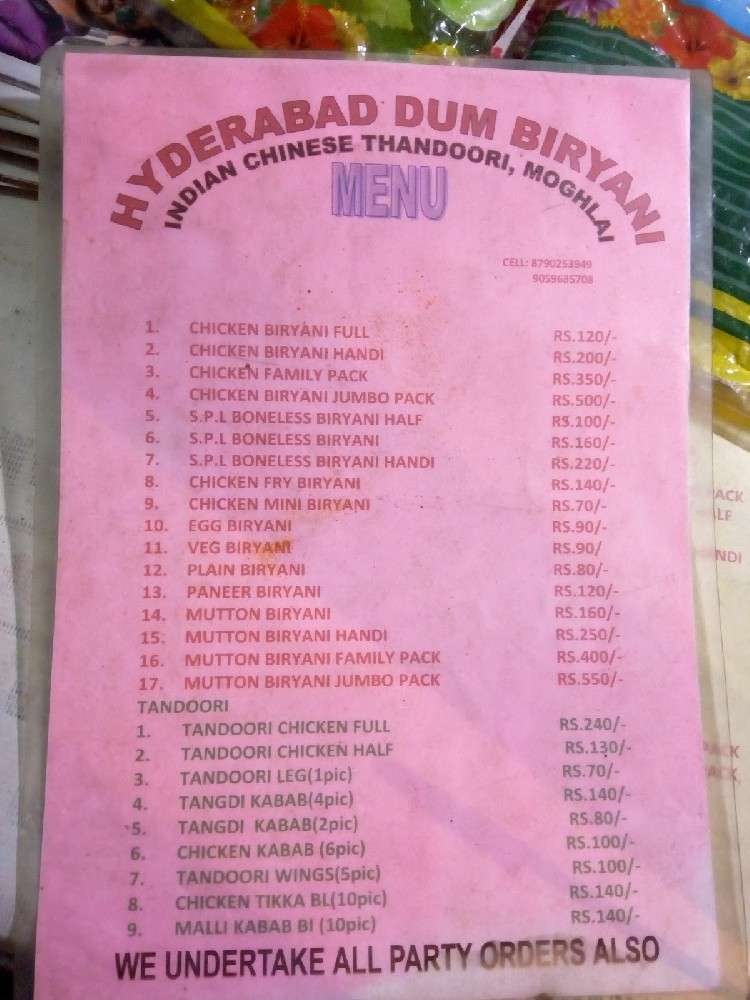 HYDERABAD DUM BIRYANI
INDIAN CHINESE THANDOORI, MOGHLAI
MENU
CELL: 8790253949
9059685708
1. CHICKEN BIRYANI FULL RS.120/-
2. CHICKEN BIRYANI HANDI RS.200/-
3. CHICKEN FAMILY PACK RS.350/-
4. CHICKEN BIRYANI JUMBO PACK RS.500/-
5. S.P.L BONELESS BIRYANI HALF RS.100/-
6. S.P.L BONELESS BIRYANI RS.160/-
7. S.P.L BONELESS BIRYANI HANDI RS.220/-
8. CHICKEN FRY BIRYANI RS.140/-
9. CHICKEN MINI BIRYANI RS.70/-
10. EGG BIRYANI RS.90/-
11. VEG BIRYANI RS.90/
12. PLAIN BIRYANI RS.80/-
13. PANEER BIRYANI RS.120/-
14. MUTTON BIRYANI RS.160/-
15. MUTTON BIRYANI HANDI RS.250/-
16. MUTTON BIRYANI FAMILY PACK RS.400/-
17. MUTTON BIRYANI JUMBO PACK RS.550/-
TANDOORI
1. TANDOORI CHICKEN FULL RS.240/-
2. TANDOORI CHICKEN HALF RS.130/-
3. TANDOORI LEG(1pic) RS.70/-
4. TANGDI KABAB(4pic) RS.140/-
5. TANGDI KABAB(2pic) RS.80/-
6. CHICKEN KABAB (6pic) RS.100/-
7. TANDOORI WINGS(5pic) RS.100/-
8. CHICKEN TIKKA BL(10pic) RS.140/-
9. MALLI KABAB BI (10pic) RS.140/-
WE UNDERTAKE ALL PARTY ORDERS ALSO